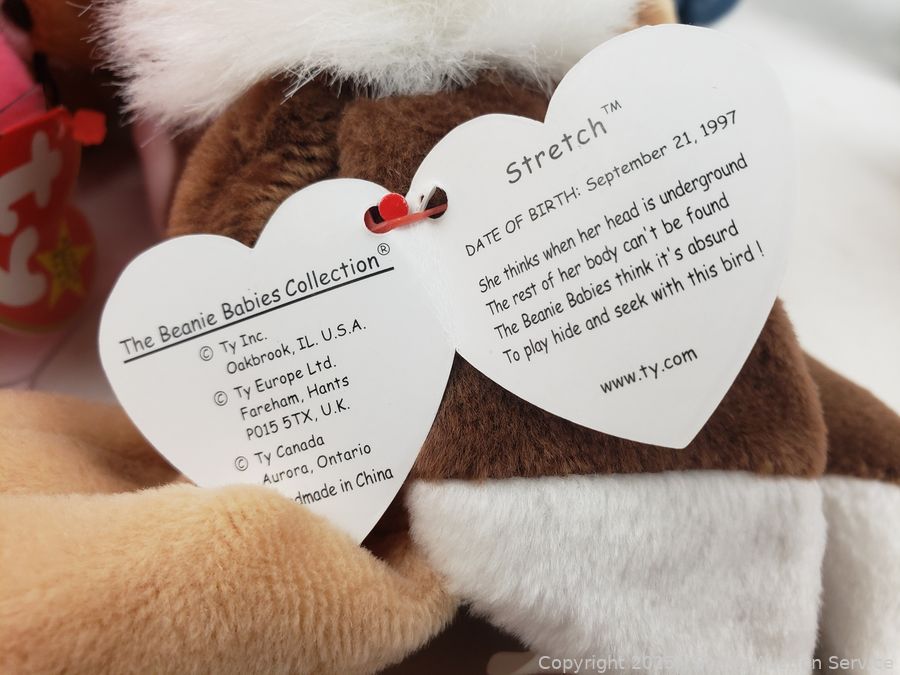 The Beanie Babies Collection®
© Ty Inc.
Oakbrook, IL. U.S.A.
© Ty Europe Ltd.
Fareham, Hants
PO15 5TX, U.K.
© Ty Canada
Aurora, Ontario
dmade in China
Stretch™
DATE OF BIRTH: September 21, 1997
She thinks when her head is underground
The rest of her body can't be found
The Beanie Babies think it's absurd
To play hide and seek with this bird !
www.ty.com
ty
Copyright Service